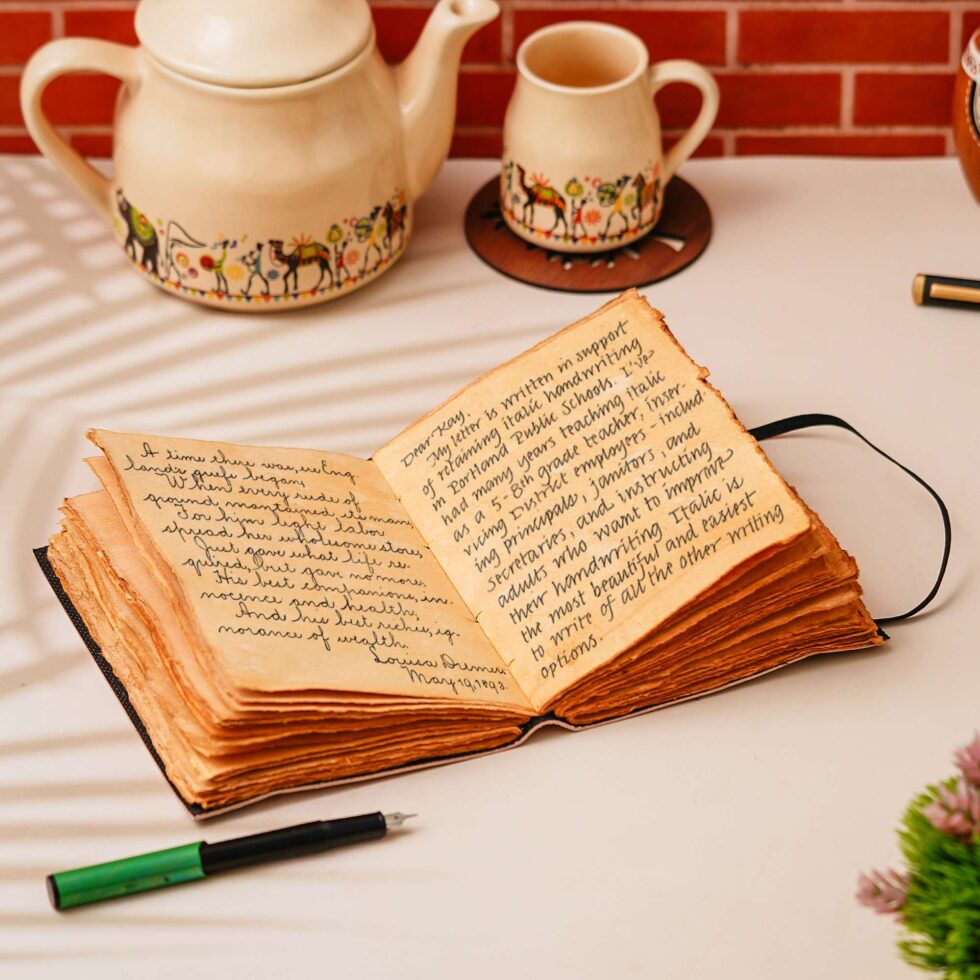 A time there was, ere Eng
lands griefs began,
When every rood of
ground maintained its man;
For him light labor
spread her wholesome store,
Just gave what life re
quired, but gave no more;
His best companions, in
nocence and health;
And his best riches, ig-
norance of wealth.
Louisa
May 19, 1893.
Dear Kay,
My letter is written in support
of retaining italic handwriting
in Portland Public Schools. I've
had many years teaching italic
as a 5-8th grade teacher, inser-
vicing District employees - includ
ing principals, janitors, and
secretaries, and instructing
adults who want to improve
their handwriting. Italic is
the most beautiful and easiest
to write of all the other writing
options.